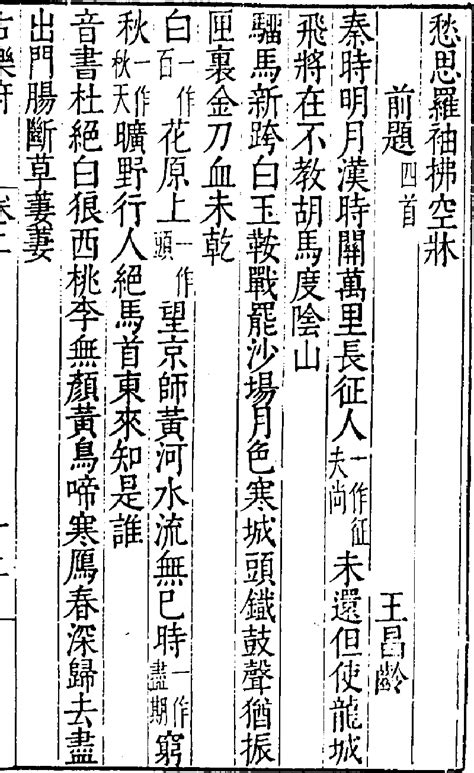 愁思羅袖拂空牀
前題四首 王昌齡
秦時明月漢時關萬里長征人一作征夫尚未還但使龍城
飛將在不教胡馬度陰山
騮馬新跨白玉鞍戰罷沙場月色寒城頭鐵鼓聲猶振
匣裏金刀血未乾
白一作百花原上一作頭望京師黃河水流無已時一作盡期窮
秋一作秋天曠野行人絕馬首東來知是誰
音書杜絕白狼西桃李無顏黃鳥啼寒鴈春深歸去盡
出門腸斷草萋萋